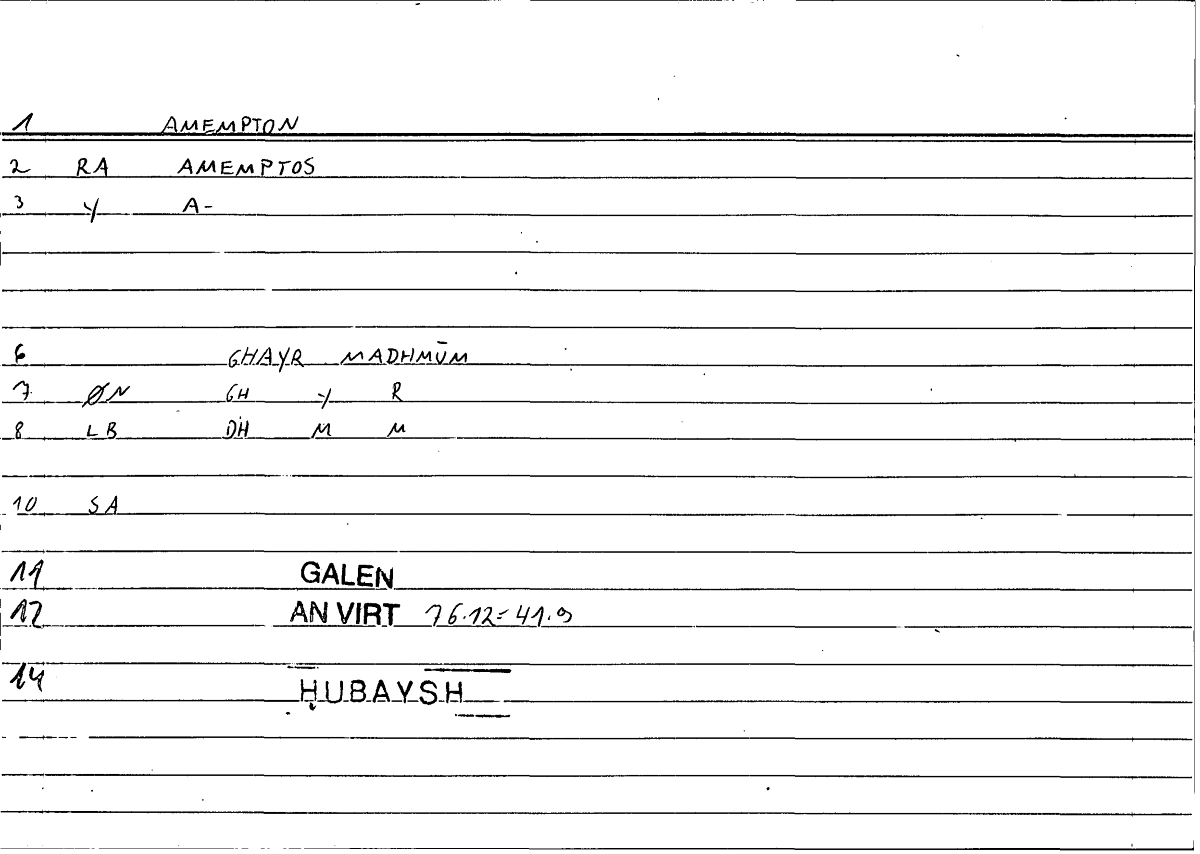 1 AMEMPTON
2 RA AMEMPTOS
3 Y A-
6 GHAYR MADHMŪM
7 ØN GH Y R
8 LB DH M M
10 SA
11 GALEN
12 AN VIRT 76.12=41.9
14 ḤUBAYSH